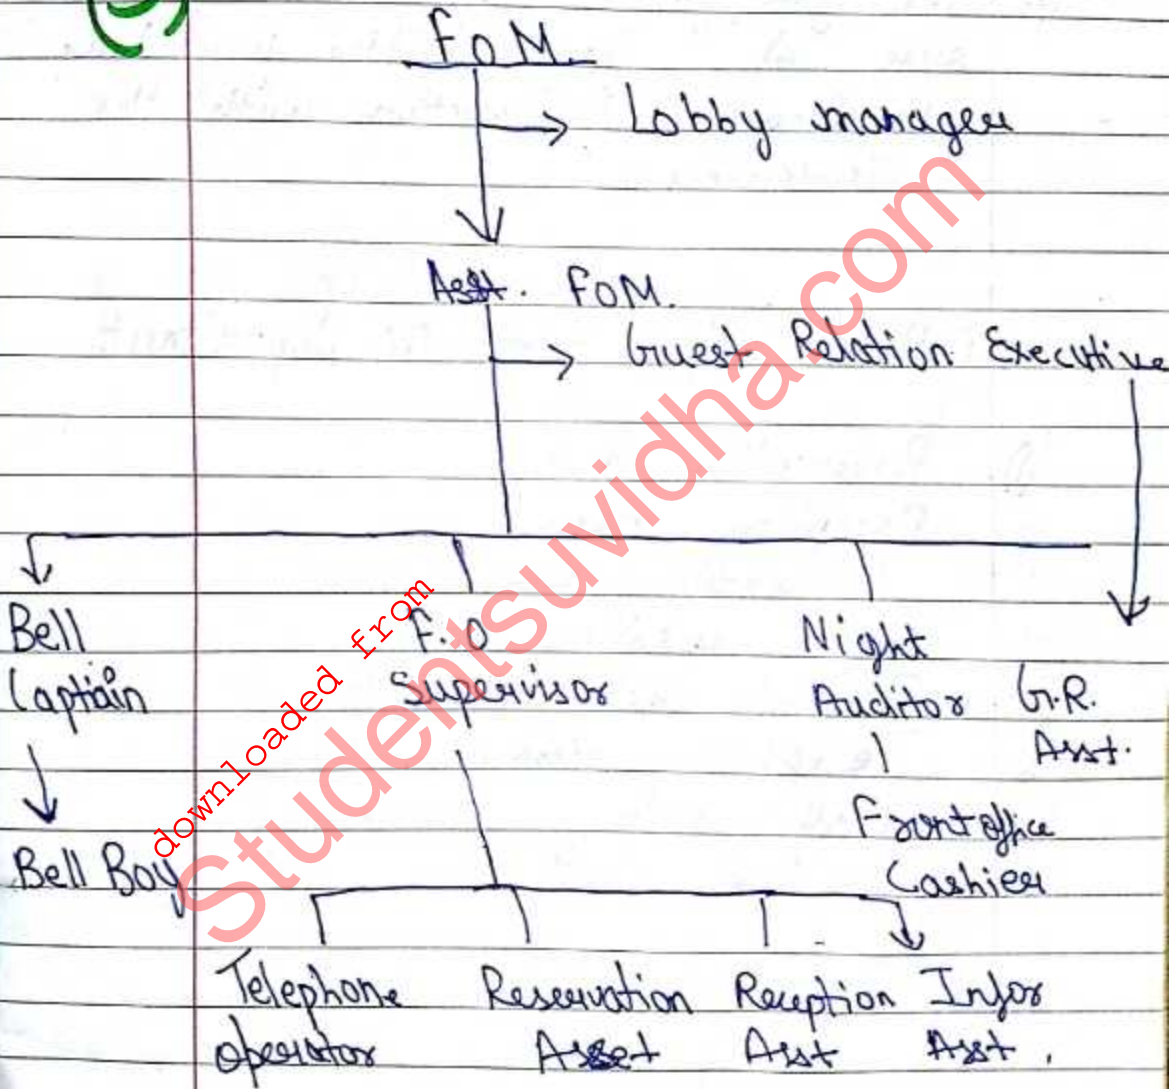 FOM
Lobby manager
Asst. FOM.
Guest Relation Executive
Bell
Captain
F.O
Supervisor
Night
Auditor
G.R.
Asst.
Bell Boy
Front office
Cashier
Telephone
operator
Reservation
Asset
Reception
Asst
Infor
Asst.
downloaded from
Studentsuvidha.com